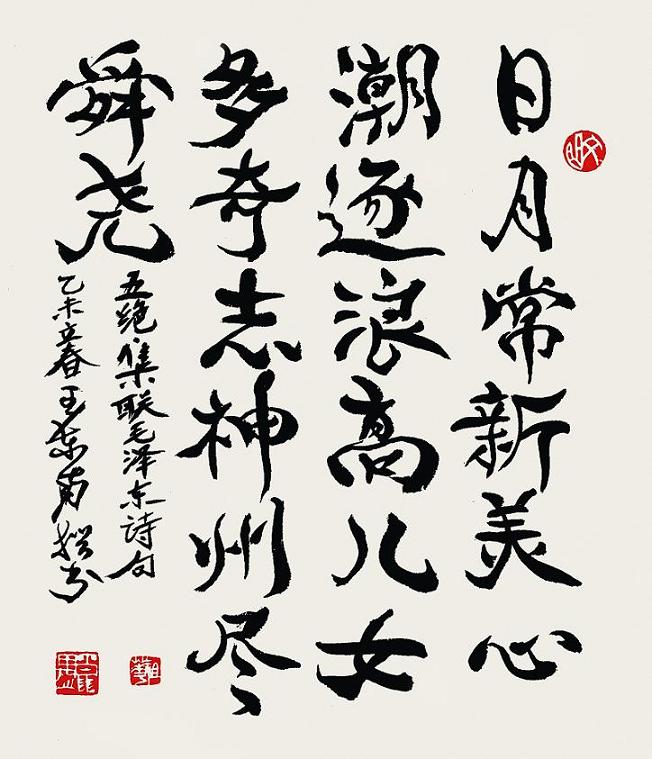 日月常新美心
潮逐浪高儿女
多奇志神州尽
舜尧
五绝·集联毛泽东诗句
乙未立春王东南撰书